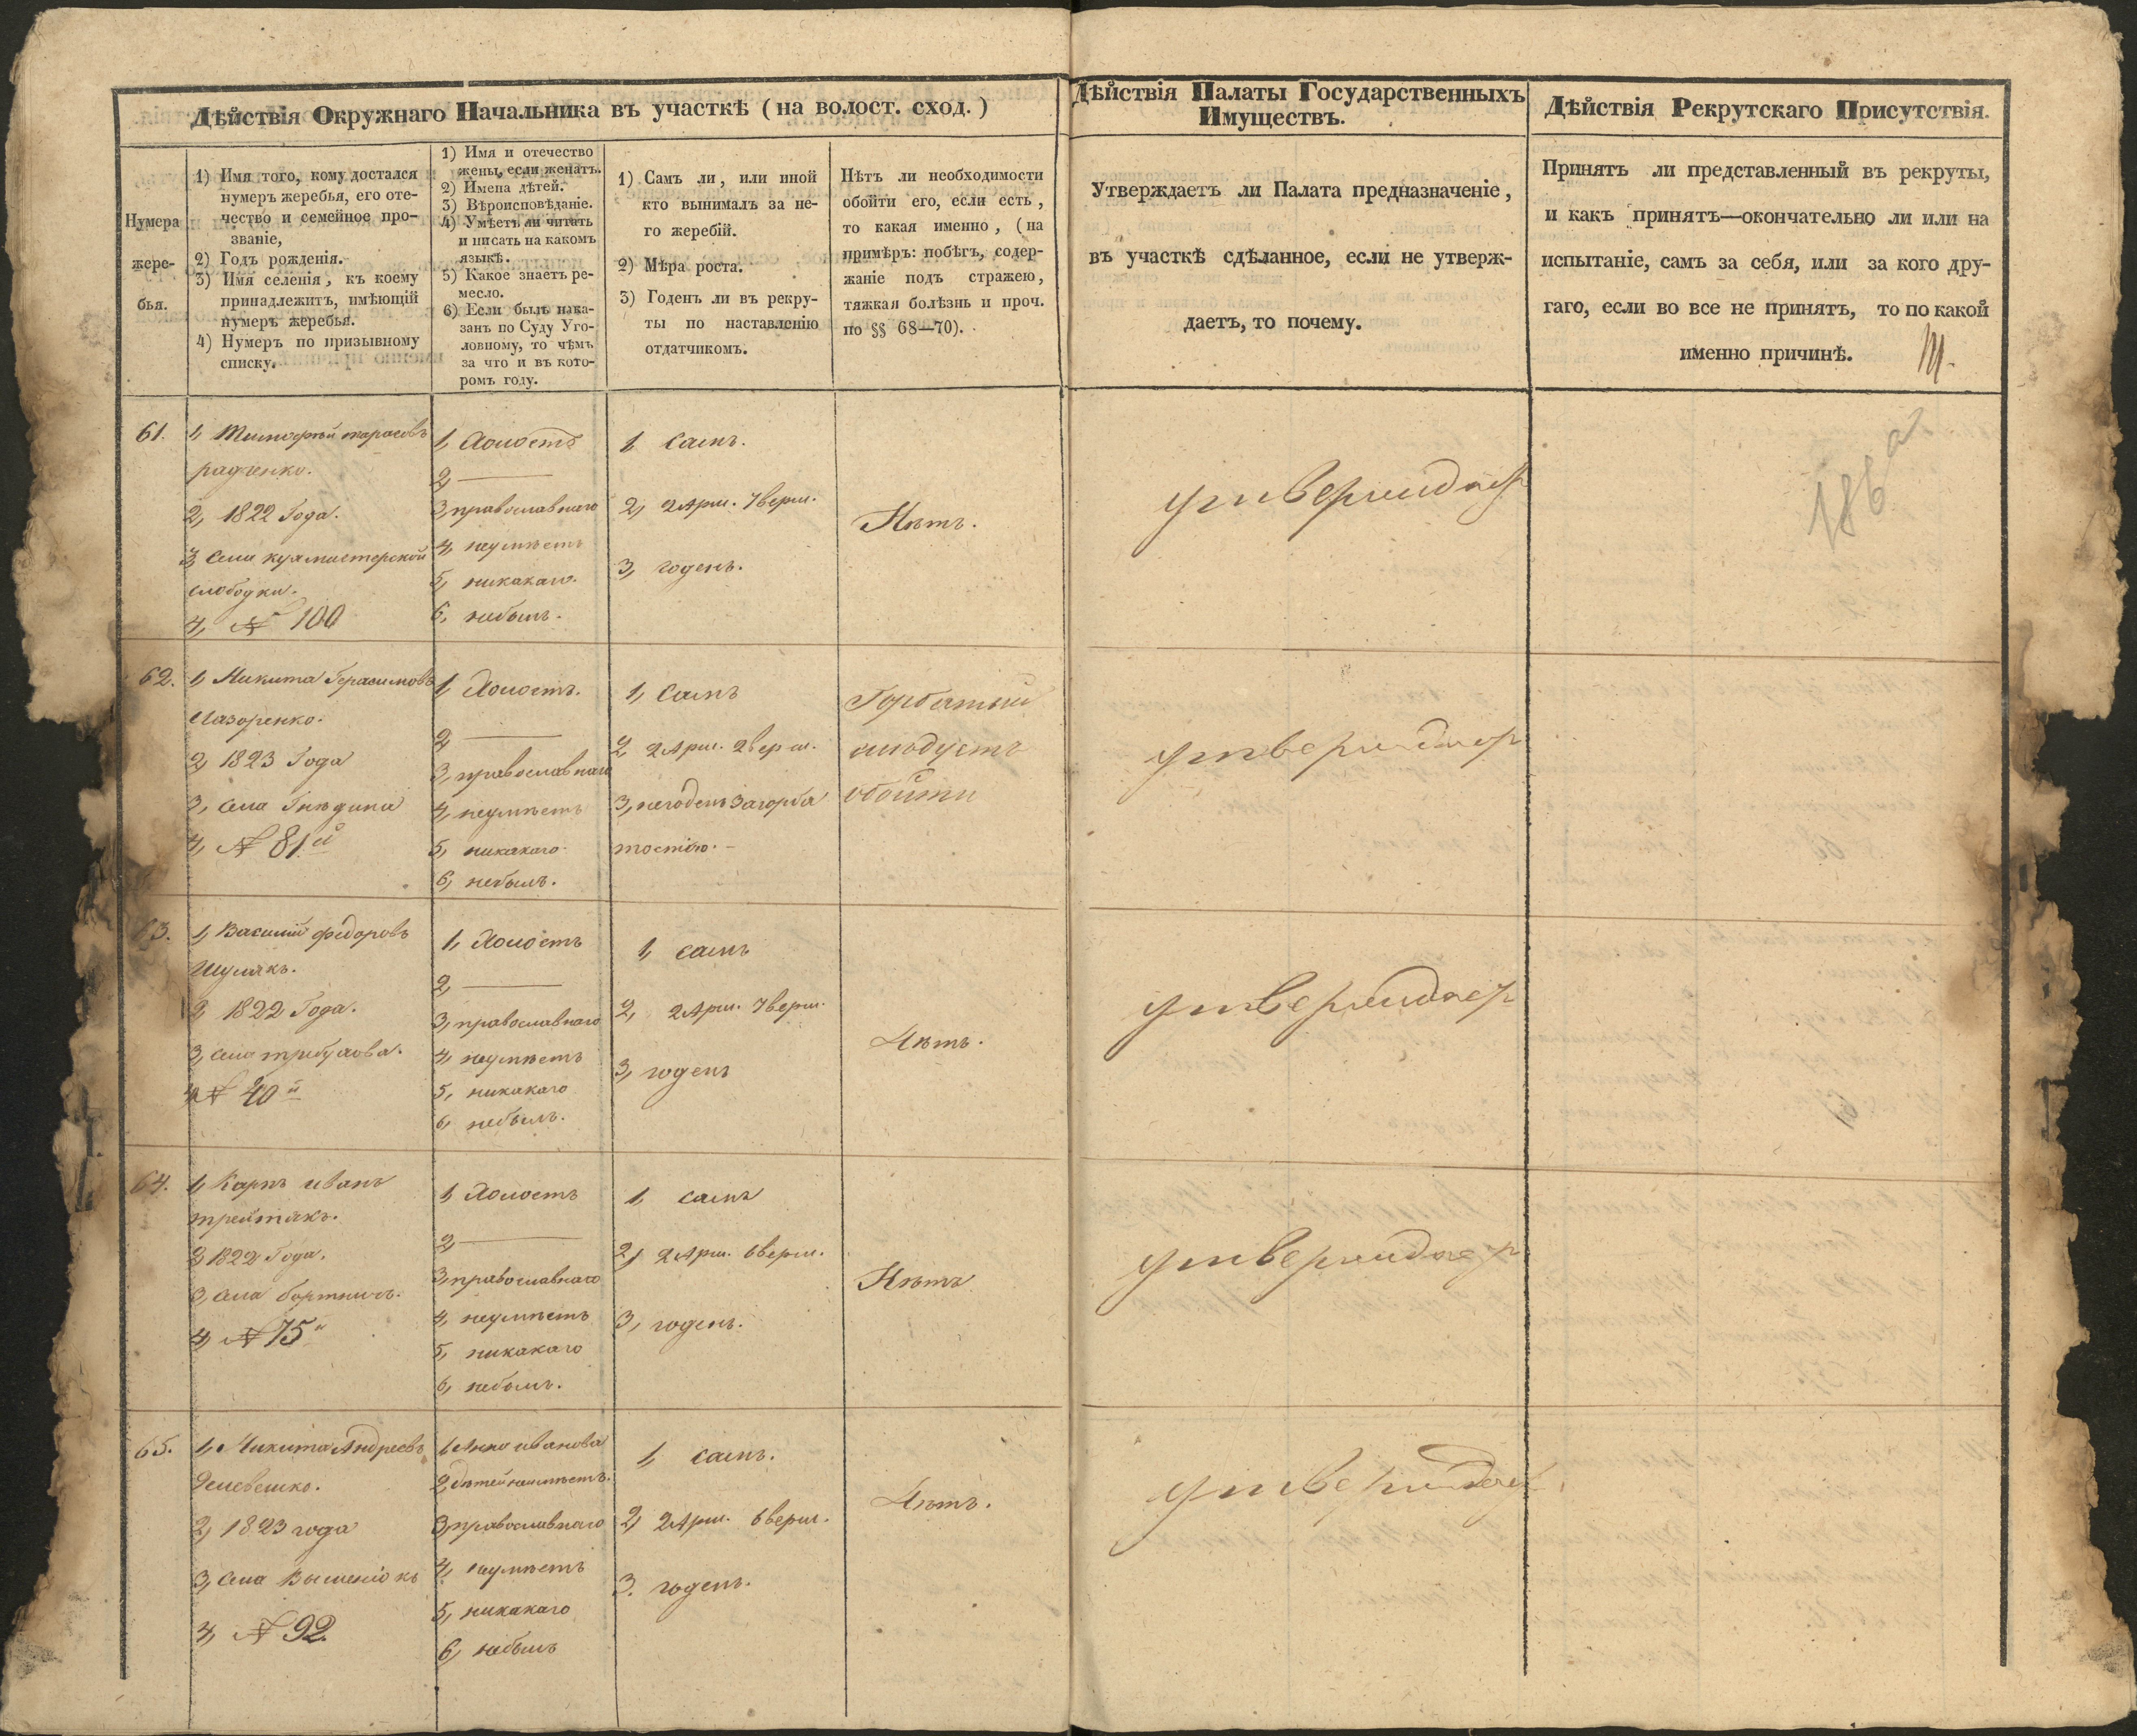 Дѣйствія Окружнаго Начальника въ участкѣ (на волост. сход.)
Дѣйствія Палаты Государственныхъ
Имуществъ.
Дѣйствія Рекрутскаго Присутствія.
Нумера
жере-
бья.
1) Имя того, кому достался
нумеръ жеребья, его оте-
чество и семейное про-
званіе,
2) Годъ рожденія.
3) Имя селенія, къ коему
принадлежитъ, имѣющій
нумеръ жеребья.
4) Нумеръ по призывному
списку.
1) Имя и отечество
жены, если женатъ.
2) Имена дѣтей.
3) Вѣроисповѣданіе.
4) Умѣетъ ли читать
и писать на какомъ
языкѣ.
5) Какое знаетъ ре-
месло.
6) Если былъ нака-
занъ по Суду Уго-
ловному, то чѣмъ
за что и въ кото-
ромъ году.
1) Самъ ли, или иной
кто вынималъ за не-
го жеребій.
2) Мѣра роста.
3) Годенъ ли въ рекру-
ты по наставленію
отдатчикомъ.
Нѣтъ ли необходимости
обойти его, если есть,
то какая именно, (на
примѣръ: побѣгъ, содер-
жаніе подъ стражею,
тяжкая болѣзнь и проч.
по §§ 68—70).
Утверждаетъ ли Палата предназначеніе,
въ участкѣ сдѣланное, если не утверж-
даетъ, то почему.
Принятъ ли представленный въ рекруты,
и какъ принятъ—окончательно ли или на
испытаніе, самъ за себя, или за кого дру-
гаго, если во все не принятъ, то по какой
именно причинѣ.
61.
1, Тимофѣй тарасовъ
радченко.
2, 1822 Года.
3, Села кухмистерской
слободки.
4, № 100
1, Холостъ
2,
3, православнаго
4, неумѣетъ
5, никакаго.
6, небылъ.
1, Самъ.
2, 2 Арш. 7 верш.
3, годенъ.
Нѣтъ.
утверждаетъ
186 а
62.
1, Никита Герасимовъ
Лазоренко.
2, 1823 Года
3, Села Гнѣдина
4, № 81й
1, Холостъ.
2,
3, православнаго
4, неумѣетъ
5, никакаго
6, небылъ.
1, Самъ
2, 2 Арш. 2 верш.
3, негоденъ загорба
тостію.
Горбатый
слѣдуетъ
обойти
утверждаетъ
63.
1, Василій федоровъ
Шулякъ.
2, 1822 Года.
3, села требухова.
4, № 40й
1, Холостъ
2,
3, православнаго
4, неумѣетъ
5, никакаго
6, небылъ.
1, самъ
2, 2 Арш. 7 верш.
3, годенъ
Нѣтъ.
утверждаетъ
64.
1, Карпъ иванъ
третякъ.
2, 1822 Года.
3, села бортничъ.
4, № 75й
1, Холостъ
2,
3, православнаго
4, неумѣетъ
5, никакаго
6, небылъ.
1, самъ
2, 2 Арш. 6 верш.
3, годенъ.
Нѣтъ
утверждаетъ
65.
1, Никита Андреевъ
2, 1823 года
3, села Вышенокъ
4, № 92.
1, Анна иванова
2, дѣтей неимѣетъ.
3, православнаго
4, неумѣетъ
5, никакаго
6, небылъ
1, самъ.
2, 2 Арш. 6 верш.
3. годенъ.
Нѣтъ.
утверждаетъ